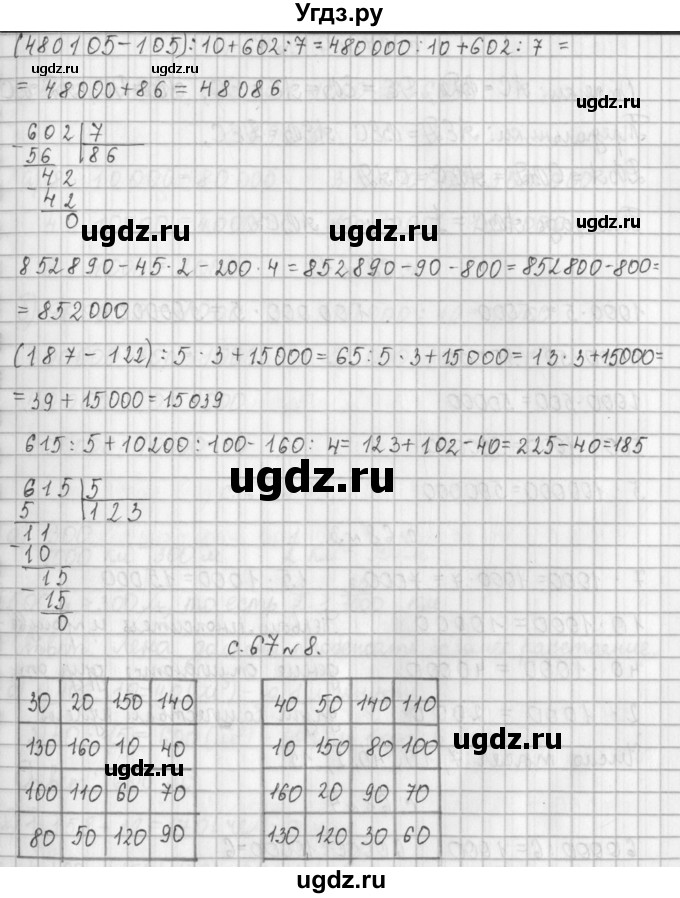 Угдз.ру
(480105-105):10+602:7=480000:10+602:7=
ugdz.ru ugdz.ru
=48000+86=48086
ugdz.ru
602 7
56 86
42
42
0
ugdz.ru ugdz.ru ugdz.ru
852890-45·2-200·4=852890-90-800=852800-800=
=852000
(187-122):5·3+15000=65:5·3+15000=13·3+15000=
=39+15000=15039
615:5+10200:100-160:4=123+102-40=225-40=185
ugdz.ru
615 5
5 123
11
10
15
15
0
с.67№8.
30 20 150 140
130 160 10 40
100 110 60 70
80 50 120 90
40 50 140 110
10 150 80 100
160 20 90 70
130 120 30 60
ugdz.ru
ugdz.ru
ugdz.ru